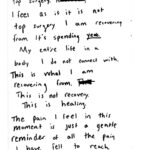 top surgery.
I feel as if it is not
top surgery I am recovering
from it's spending yea
My entire life in a
body I do not connect with.
This is what I am
recovering from
This is not recovery.
This is healing.
The pain I feel in this
moment is just a gentle
reminder of all the pain
I have fell to reach